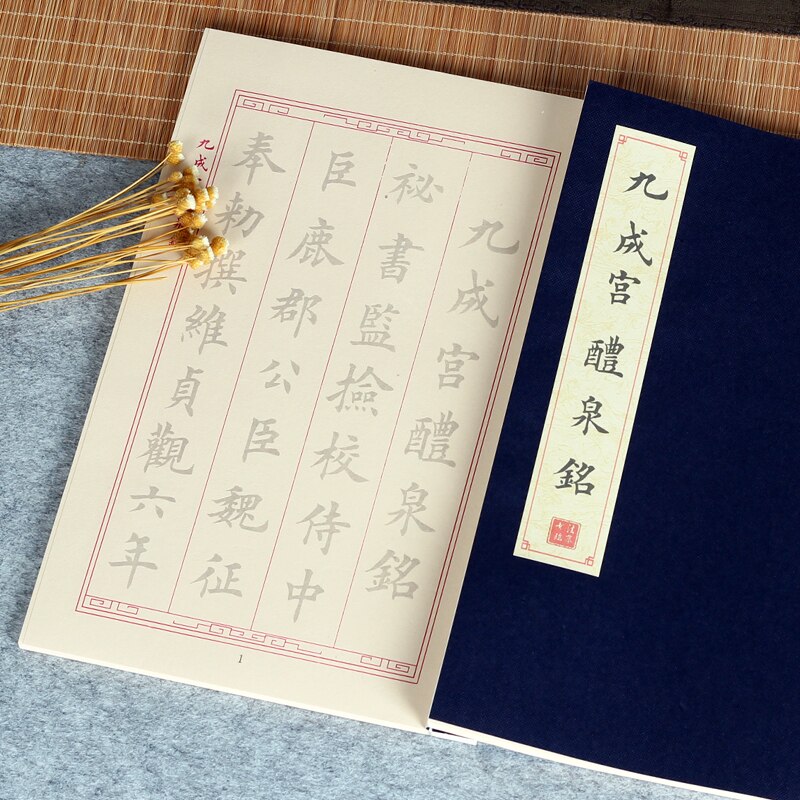 九成宫醴泉銘
九成宫醴泉銘
祕書監撿校侍中
臣鹿郡公臣魏征
奉勅撰維貞觀六年
九成
1